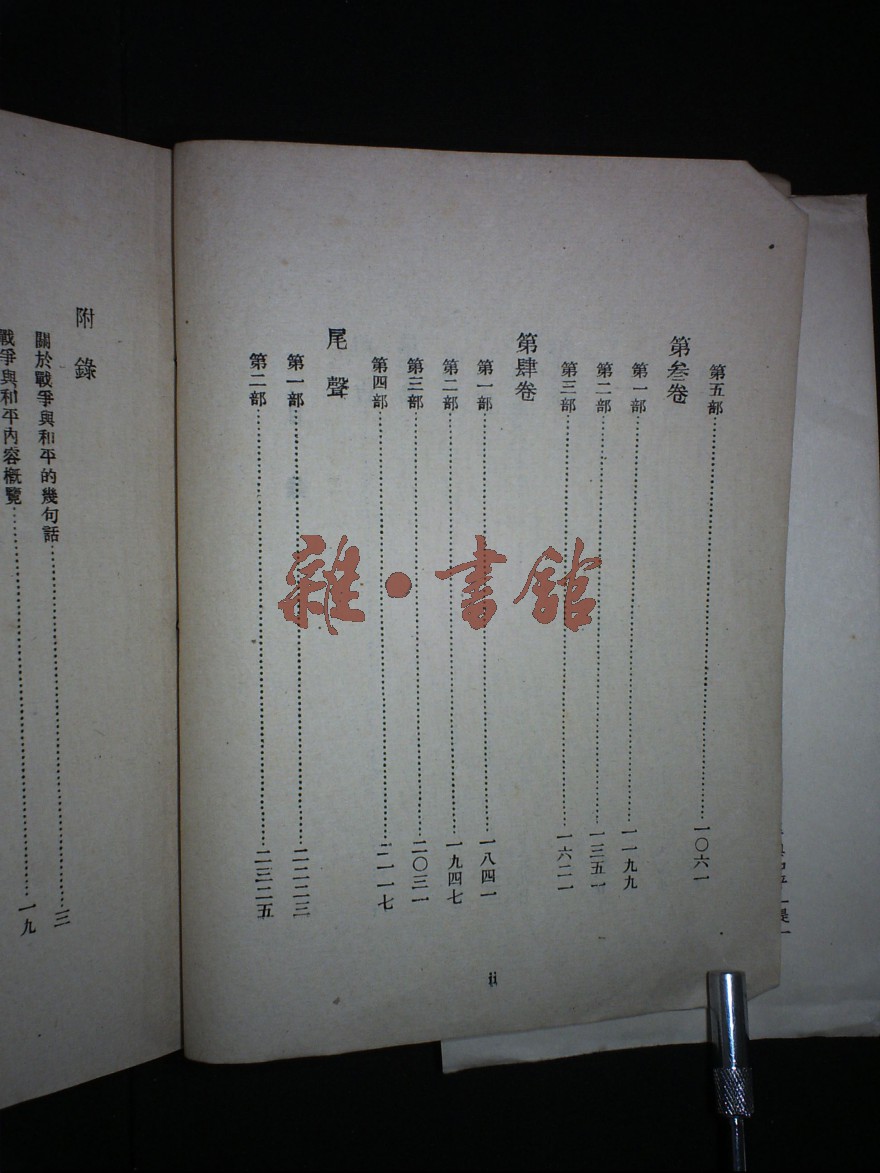 第五部……一〇六一
第叁卷
第一部……一一九九
第二部……一三五一
第三部……一六二一
第肆卷
第一部……一八四一
第二部……一九四七
第三部……二〇三一
第四部……二一一七
尾聲
第一部……二二二三
第二部……二三二五
ii
附錄
關於戰爭與和平的幾句話……三
戰爭與和平內容概覽……一九
雜·書舘